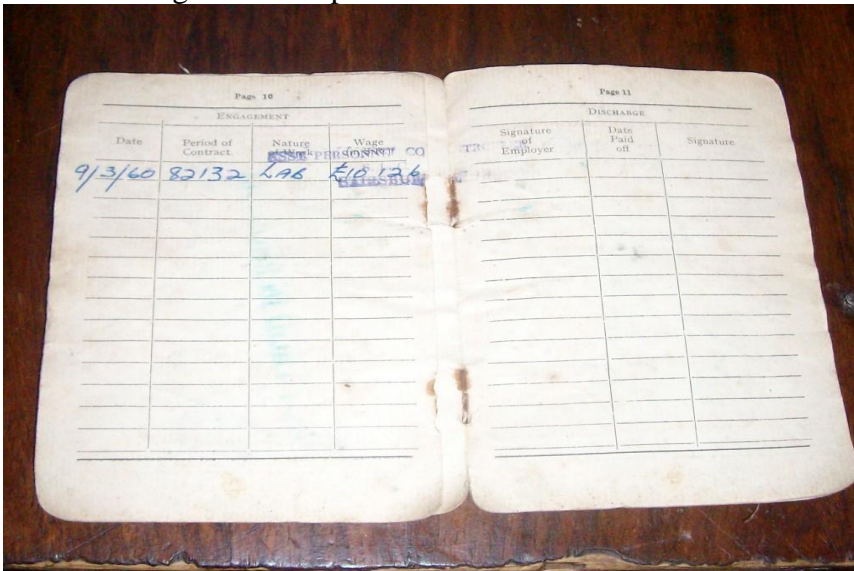 Page 10
ENGAGEMENT
Date Period of Contract Nature of Work Wage
PERSONNEL CO
9/3/60 82132 LAB £10 12 6
Page 11
DISCHARGE
Signature of Employer Date Paid off Signature